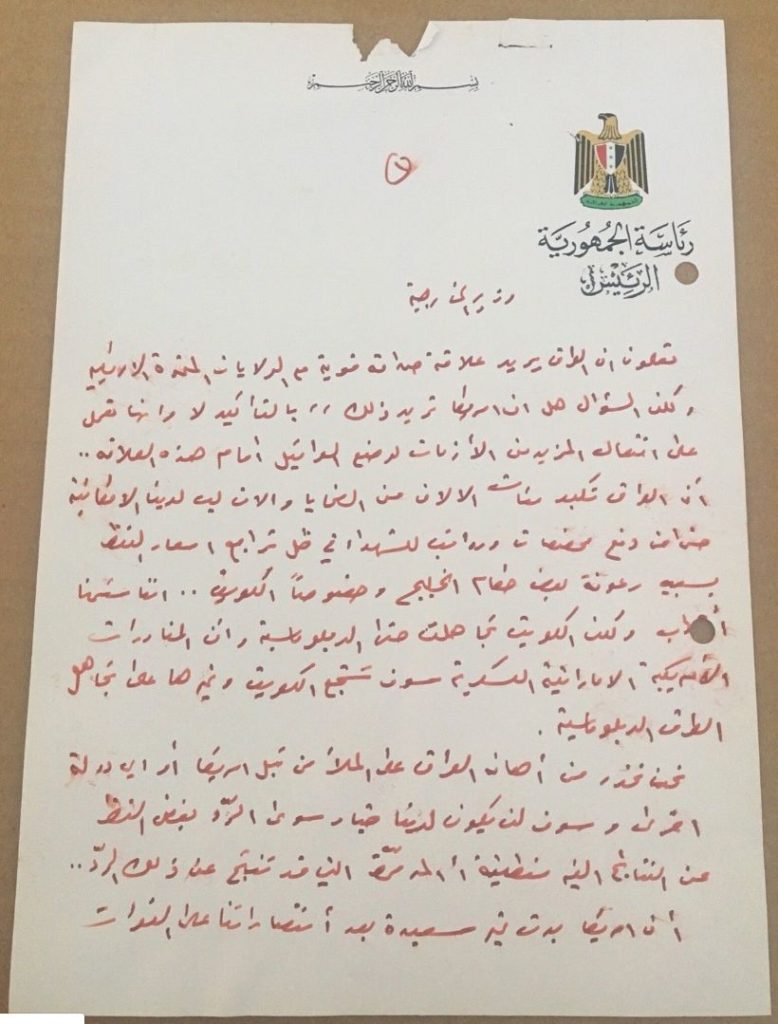 بسم الله الرحمن الرحيم
رئاسة الجمهورية
الرئيس
وزير الخارجية
تعلمون ان العراق يريد علاقة صداقة قوية مع الولايات المتحدة الامريكية
ولكن السؤال هل ان امريكا تريد ذلك ،، بالتأكيد لا وانها تعمل
على افتعال المزيد من الأزمات لوضع العراقيل أمام هذه العلاقه ..
أن العراق تكبد مئات الالاف من الضحايا والان ليس لدينا الامكانية
حتى من دفع مخصصات ورواتب للشهداء في ظل تراجع اسعار النفط
بسبب رعونة بعض حكام الخليج وخصوصاً الكويت .. اننا
ولكن الكويت تجاهلت حتى الدبلوماسية وأن المناورات
الأمريكية الاماراتية العسكرية سوف تشجع الكويت وغيرها على تجاهل
الطرق الدبلوماسية .
نحن نحذر من أهانه العراق على الملأ من قبل امريكا أو اي دولة
اخرى وسوف لن يكون لدينا خيار سوى الرّد بغض النظر
عن النتائج التي قد تنتج عن ذلك الردّ ..
أن امريكا بدت غير سعيدة بعد أنتصاراتنا على القوات